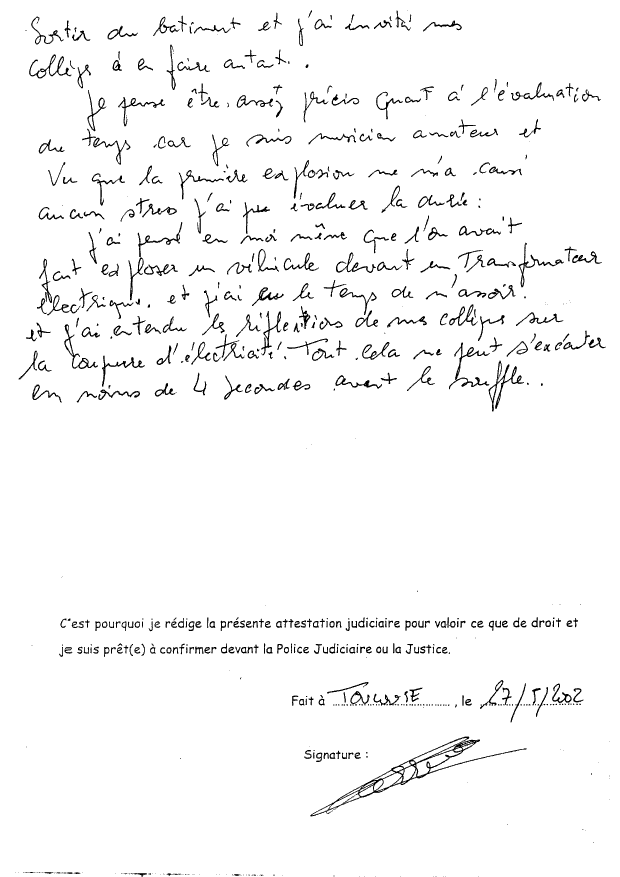 Sortir du batiment et j'ai invité mes
collègs à en faire autant..
Je pense être assez précis quant à l'évaluation
du temps car je suis musicien amateur et
Vu que la première explosion ne m'a causé
aucun stress j'ai pu évaluer la durée :
J'ai pensé en moi même que l'on avait
fait exploser un véhicule devant un Transformateur
électrique. et j'ai eu le temps de m'assoir.
et j'ai entendu les réflections de mes collègus sur
la coupure d'électricité. Tout cela ne peut s'exécuter
en moins de 4 secondes avant le souffle..
C'est pourquoi je rédige la présente attestation judiciaire pour valoir ce que de droit et
je suis prêt(e) à confirmer devant la Police Judiciaire ou la Justice.
Fait à TOULOUSE, le 27/5/2002
Signature :